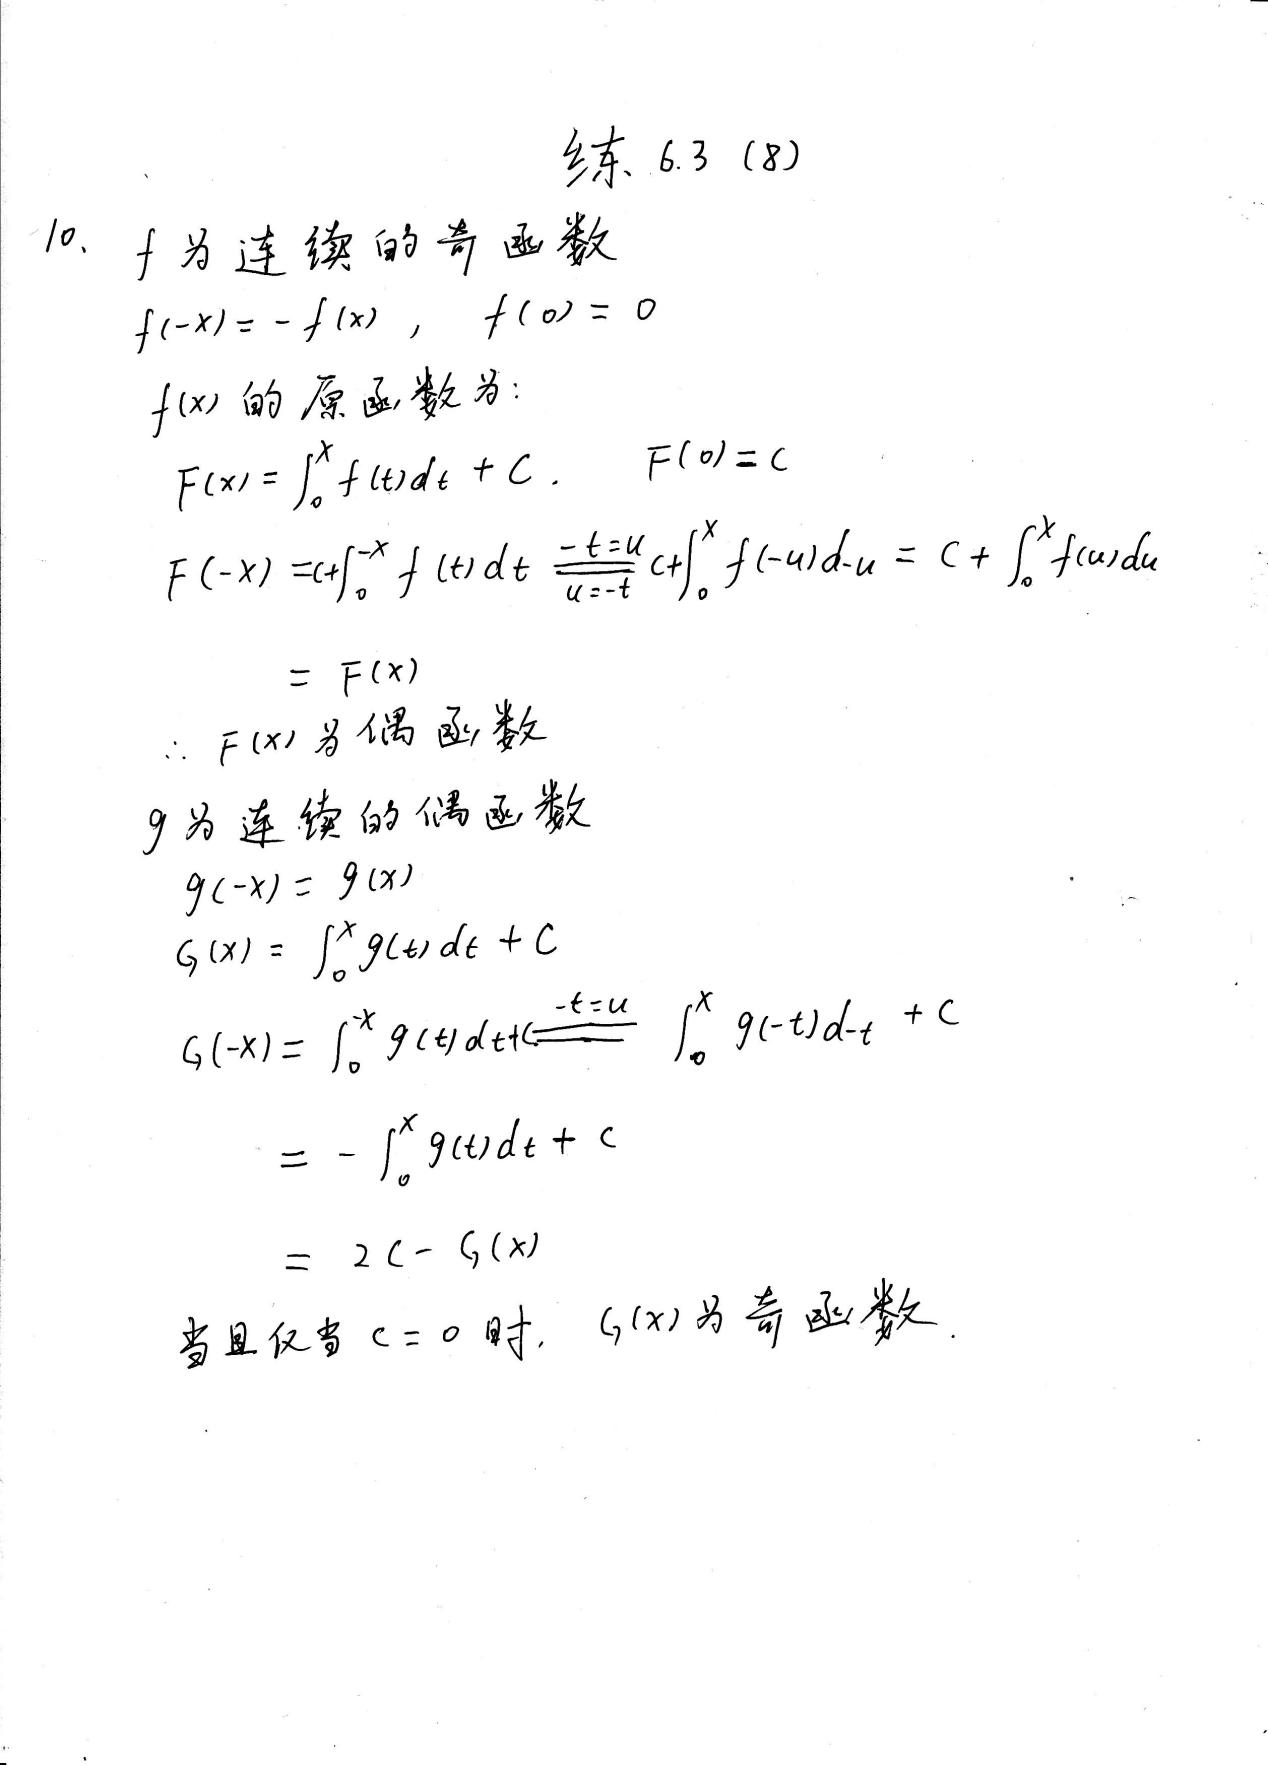 练 6.3 (8)
10、 f 为连续的奇函数
f(-x) = -f(x) , f(0) = 0
f(x) 的原函数为:
F(x) = ∫₀ˣ f(t)dt + C. F(0) = C
F(-x) = C+∫₀⁻ˣ f(t)dt =(-t=u / u=-t)= C+∫₀ˣ f(-u)d-u = C + ∫₀ˣ f(u)du
= F(x)
∴ F(x) 为偶函数
g 为连续的偶函数
g(-x) = g(x)
G(x) = ∫₀ˣ g(t)dt + C
G(-x) = ∫₀⁻ˣ g(t)dt+C =(-t=u)= ∫₀ˣ g(-t)d-t + C
= -∫₀ˣ g(t)dt + C
= 2C - G(x)
当且仅当 C=0 时, G(x) 为奇函数.